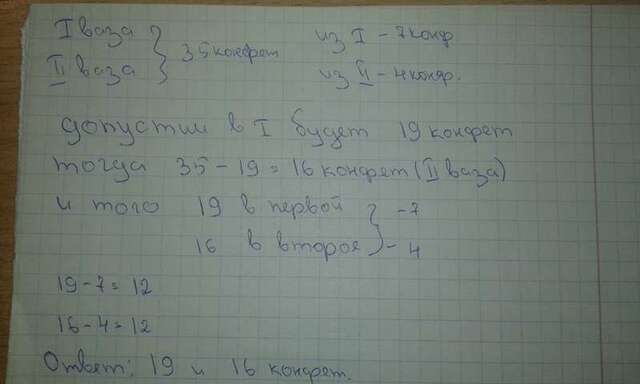 I ваза } 35 конфет из I - 7 конф
II ваза из II - 4 конф.
допустим в I будет 19 конфет
тогда 35 - 19 = 16 конфет (II ваза)
и того 19 в первой } - 7
16 в второе - 4
19 - 7 = 12
16 - 4 = 12
Ответ: 19 и 16 конфет.